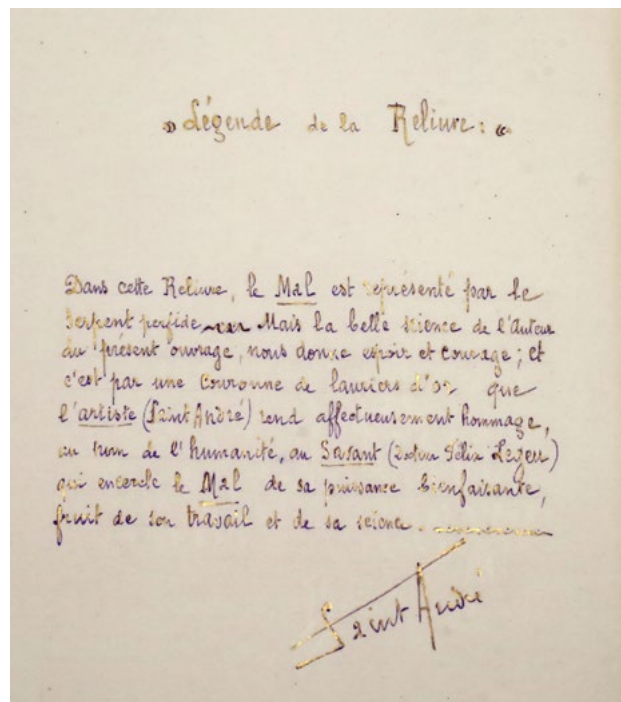 » Légende de la Reliure : «
Dans cette Reliure, le Mal est représenté par le
Serpent perfide Mais la belle science de l'Auteur
du présent ouvrage, nous donne espoir et courage ; et
c'est par une Couronne de lauriers d'or que
l'artiste (Saint André) rend affectueusement hommage,
au nom de l'humanité, au Savant (Docteur Félix Legeu)
qui encercle le Mal de sa puissance bienfaisante,
fruit de son travail et de sa science.
Saint André